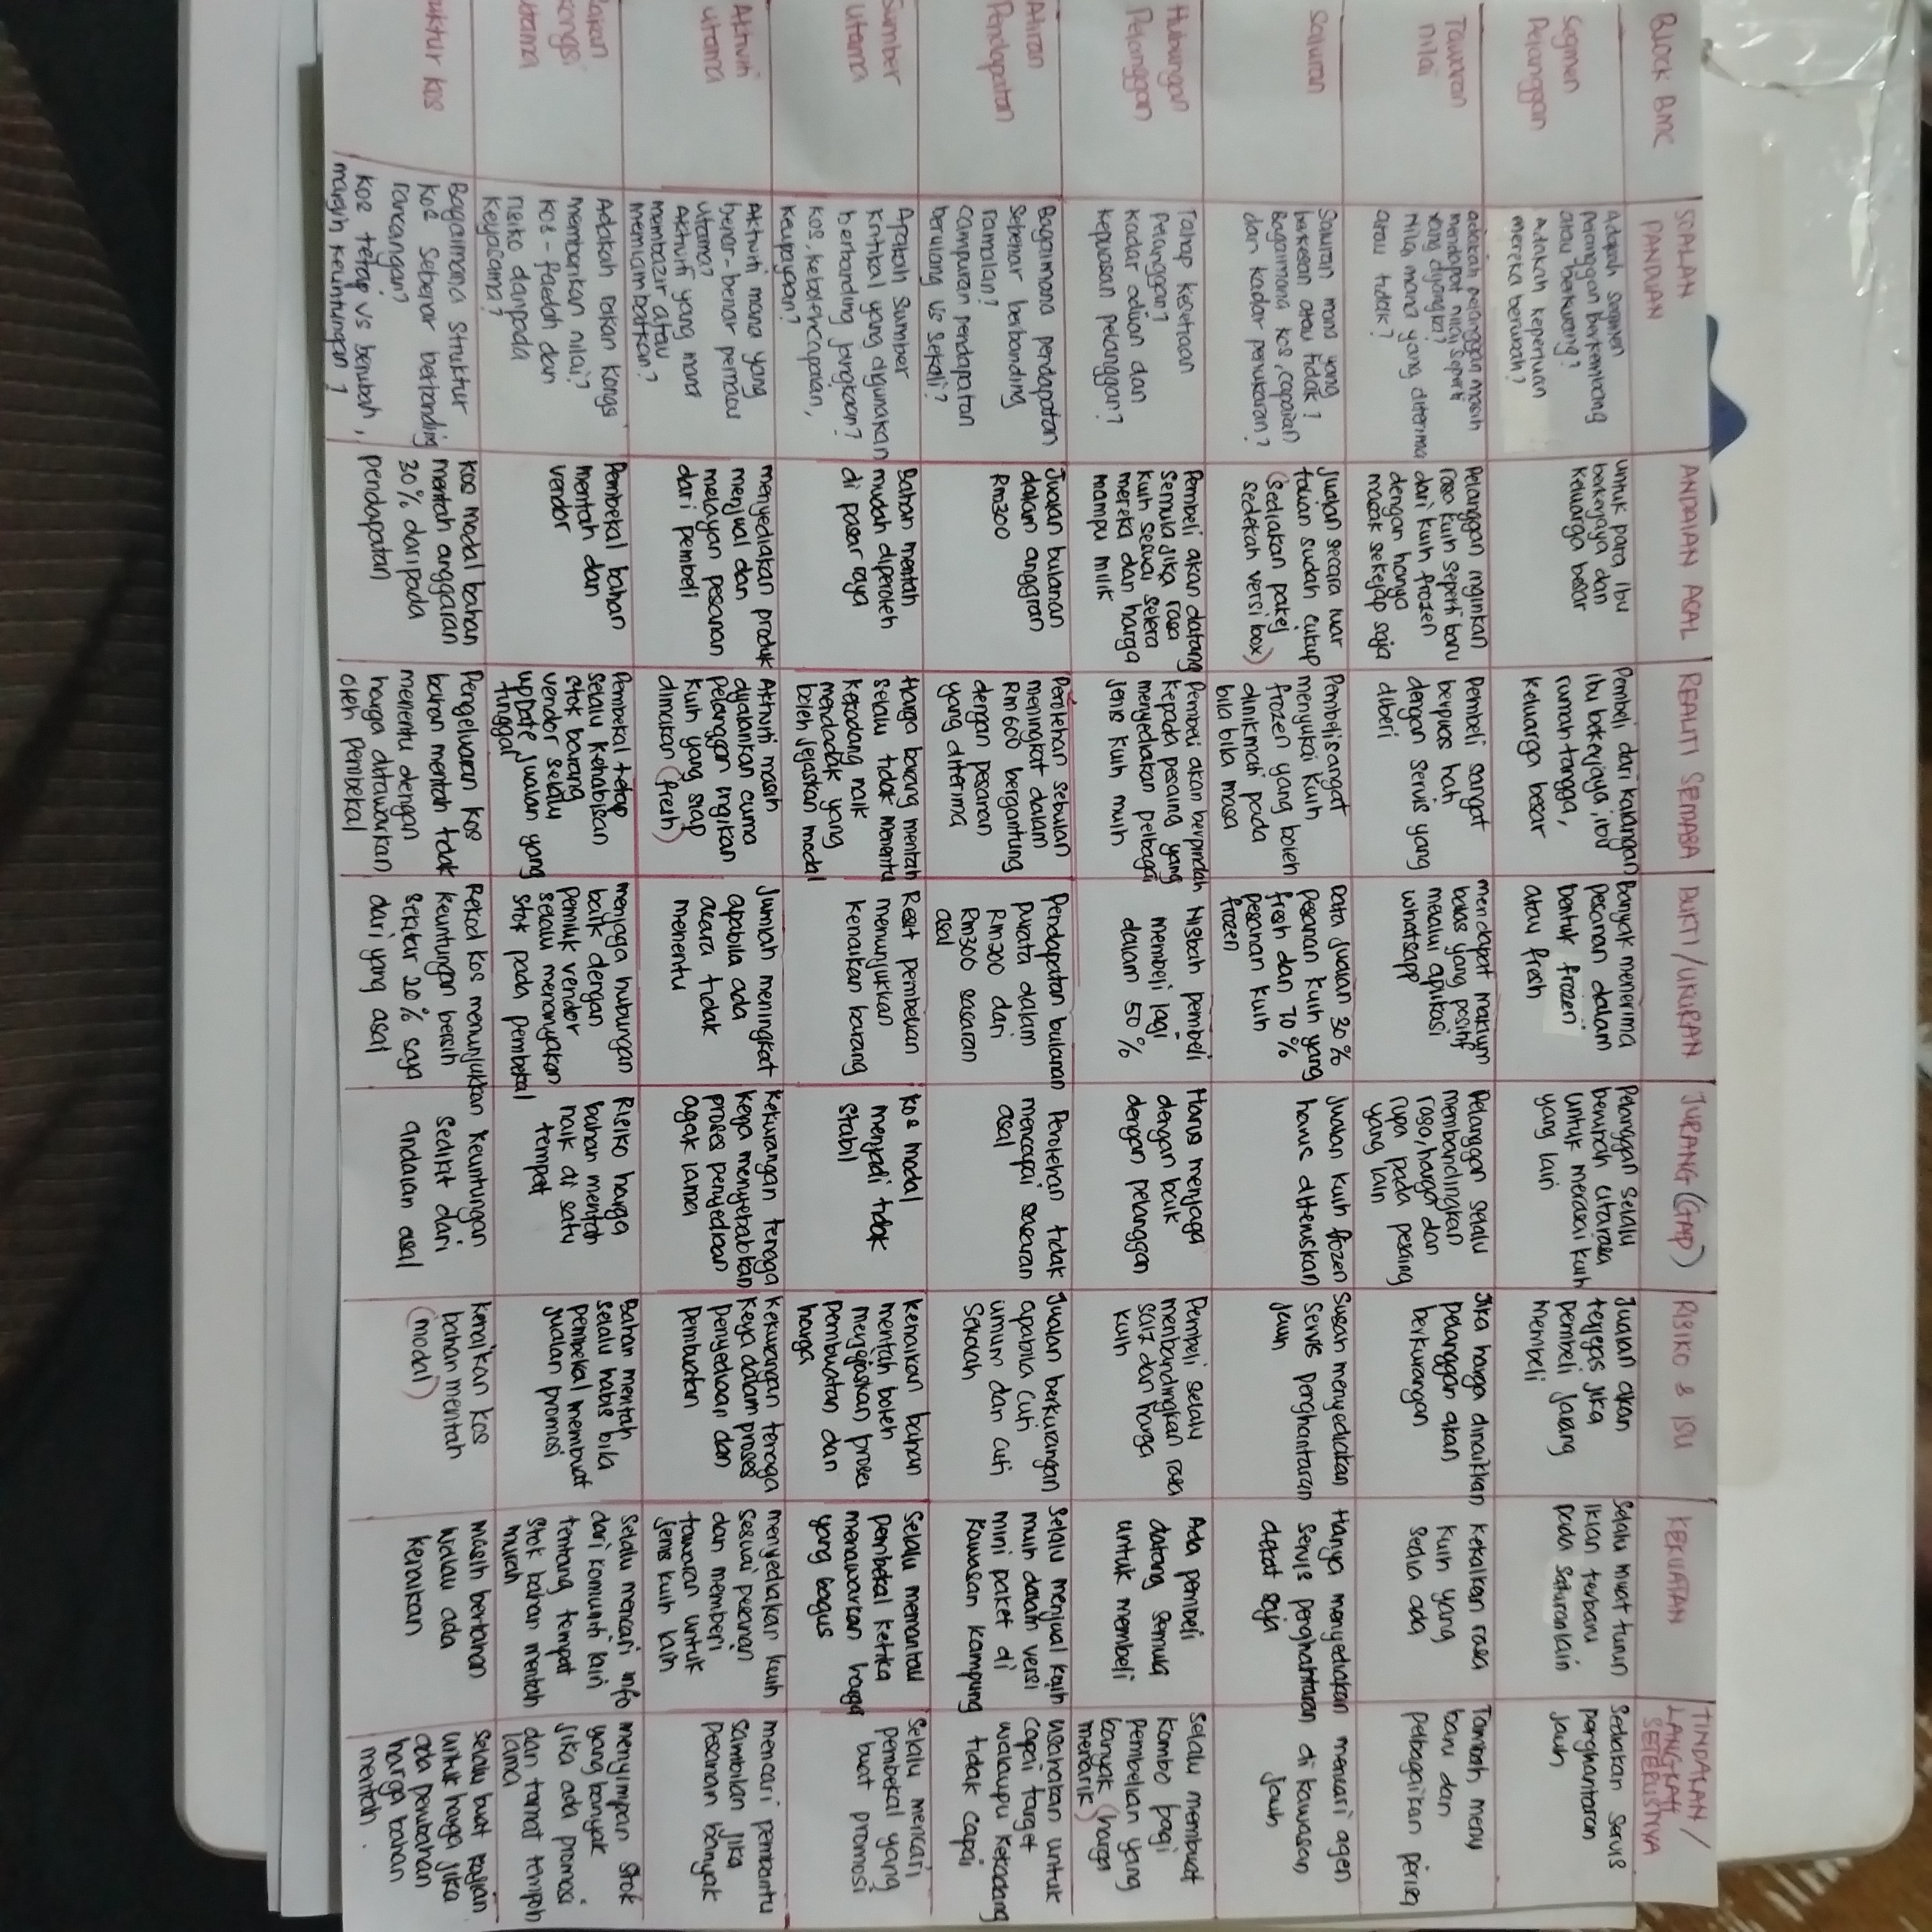 BLOCK BMC
SOALAN
PANDUAN
ANDAIAN ASAL
REALITI SEMASA
BUKTI / UKURAN
JURANG (GAP)
RISIKO & ISU
KEKUATAN
TINDAKAN /
LANGKAH
SETERUSNYA
Segmen
Pelanggan
Adakah segmen
pelanggan berkembang
atau berkurang?
Adakah keperluan
mereka berubah?
untuk para ibu
bekerjaya dan
keluarga besar
Pembeli dari kalangan
ibu bekerjaya, ibu
rumah tangga,
keluarga besar
Banyak menerima
pesanan dalam
bentuk frozen
atau fresh
Pelanggan selalu
berubah citarasa
untuk merasai kuih
yang lain
Jualan akan
terjejas jika
pembeli jarang
membeli
Selalu muat turun
iklan terbaru
pada saluran lain
Sediakan servis
penghantaran
jauh
Tawaran
nilai
adakah pelanggan masih
mendapat nilai seperti
yang dijangka?
Nilai mana yang diterima
atau tidak?
Pelanggan inginkan
rasa kuih seperti baru
dari kuih frozen
dengan hanya
masak sekejap saja
Pembeli sangat
berpuas hati
dengan servis yang
diberi
mendapat maklum
balas yang positif
melalui aplikasi
whatsapp
Pelanggan selalu
membandingkan
rasa, harga dan
rupa pada pesaing
yang lain
Jika harga dinaikkan
pelanggan akan
berkurangan
Kekalkan rasa
kuih yang
sedia ada
Tambah menu
baru dan
pelbagaikan perisa
Saluran
Saluran mana yang
berkesan atau tidak?
Bagaimana kos, capaian
dan kadar penukaran?
Jualan secara luar
talian sudah cukup
(sediakan pakej
sedekah versi box)
Pembeli sangat
menyukai kuih
frozen yang boleh
dinikmati pada
bila bila masa
Data jualan 30%
pesanan kuih yang
fresh dan 70%
pesanan kuih
frozen
Jualan kuih frozen
harus diteruskan
Susah menyediakan
servis penghantaran
jauh
Hanya menyediakan
servis penghantaran
dekat saja
mencari agen
di kawasan
jauh
Hubungan
Pelanggan
Tahap kesetiaan
pelanggan?
Kadar aduan dan
kepuasan pelanggan?
Pembeli akan datang
semula jika rasa
kuih sesuai selera
mereka dan harga
mampu milik
Pembeli akan berpindah
kepada pesaing yang
menyediakan pelbagai
jenis kuih muih
Nisbah pembeli
membeli lagi
dalam 50%
Harus menjaga
dengan baik
dengan pelanggan
Pembeli selalu
membandingkan rasa
saiz dan harga
kuih
Ada pembeli
datang semula
untuk membeli
Selalu membuat
kombo bagi
pembelian yang
banyak (harga
menarik)
Aliran
Pendapatan
Bagaimana pendapatan
sebenar berbanding
ramalan?
Campuran pendapatan
berulang vs sekali?
Jualan bulanan
dalam anggaran
Rm300
Perolehan sebulan
meningkat dalam
Rm600 bergantung
dengan pesanan
yang diterima
Pendapatan bulanan
purata dalam
Rm200 dari
Rm300 sasaran
asal
Perolehan tidak
mencapai sasaran
asal
Jualan berkurangan
apabila cuti
umum dan cuti
sekolah
Selalu menjual kuih
muih dalam versi
mini paket di
kawasan kampung
usahakan untuk
capai target
walaupu kekadang
tidak capai
Sumber
utama
Apakah sumber
kritikal yang digunakan
berbanding jangkaan?
kos, kebolehcapaian,
keupayaan?
Bahan mentah
mudah diperoleh
di pasar raya
Harga barang mentah
selalu tidak menentu
kekadang naik
mendadak yang
boleh jejaskan modal
Resit pembelian
menunjukkan
kenaikan barang
kos modal
menjadi tidak
stabil
kenaikan bahan
mentah boleh
menjejaskan proses
pembuatan dan
harga
Selalu memantau
pembekal ketika
menawarkan harga
yang bagus
Selalu mencari
pembekal yang
buat promosi
Aktiviti
utama
Aktiviti mana yang
benar-benar pemacu
utama?
Aktiviti yang mana
membazir atau
memlambatkan?
menyediakan produk
menjual dan
melayan pesanan
dari pembeli
Aktiviti masih
dijalankan cuma
pelanggan ingikan
kuih yang siap
dimakan (fresh)
Jumlah meningkat
apabila ada
acara tidak
menentu
Kekurangan tenaga
kerja menyebabkan
proses penyediaan
agak lama
Kekurangan tenaga
kerja dalam proses
penyediaan dan
pembuatan
menyediakan kuih
sesuai pesanan
dan memberi
tawaran untuk
jenis kuih lain
mencari pembantu
sambilan jika
pesanan banyak
Rakan
kongsi
utama
Adakah rakan kongsi
memberikan nilai?
kos-faedah dan
risiko daripada
kerjasama?
Pembekal bahan
mentah dan
vendor
Pembekal tetap
selalu kehabisan
stok barang
vendor selalu
update jualan yang
tinggal
menjaga hubungan
baik dengan
pemilik vendor
selalu menanyakan
stok pada pembekal
Risiko harga
bahan mentah
naik di satu
tempat
Bahan mentah
selalu habis bila
pembekal membuat
jualan promosi
Selalu mencari info
dari komuniti lain
tentang tempat
stok bahan mentah
murah
menyimpan stok
yang banyak
jika ada promosi
dan tamat tempoh
lama
uktur kos
Bagaimana struktur
kos sebenar bertanding
rancangan?
kos tetap vs berubah,
margin keuntungan?
kos modal bahan
mentah anggaran
30% daripada
pendapatan
Pengeluaran kos
bahan mentah tidak
menentu dengan
harga ditawarkan
oleh pembekal
Rekod kos menunjukkan
keuntungan bersih
sekitar 20% saja
dari yang asal
Keuntungan
sedikit dari
andaian asal
kenaikan kos
bahan mentah
(modal)
masih bertahan
walau ada
kenaikan
Selalu buat kajian
untuk harga jika
ada perubahan
harga bahan
mentah.